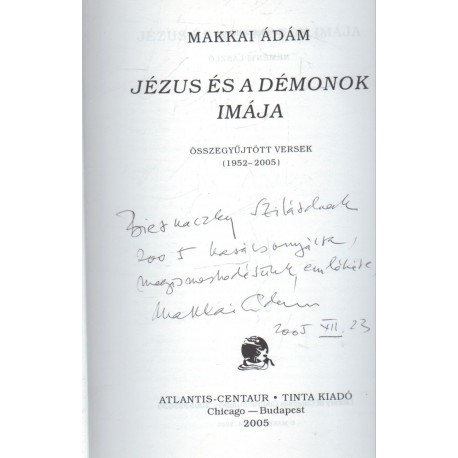 MAKKAI ÁDÁM
JÉZUS ÉS A DÉMONOK
IMÁJA
ÖSSZEGYŰJTÖTT VERSEK
(1952–2005)
Biernaczky Szilárdnak
2005 karácsonyára,
megismerkedésünk emlékére
Makkai Ádám
2005 XII. 23
ATLANTIS-CENTAUR • TINTA KIADÓ
Chicago — Budapest
2005